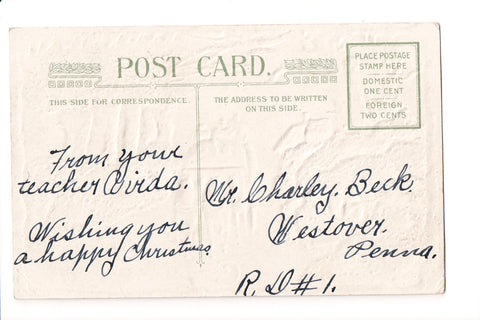 POST CARD.
THIS SIDE FOR CORRESPONDENCE.
THE ADDRESS TO BE WRITTEN
ON THIS SIDE.
PLACE POSTAGE
STAMP HERE
DOMESTIC
ONE CENT
FOREIGN
TWO CENTS
From your
teacher Birda.
Wishing you
a happy Christmas
Mr. Charley. Beck.
Westover.
Penna.
R. D #1.